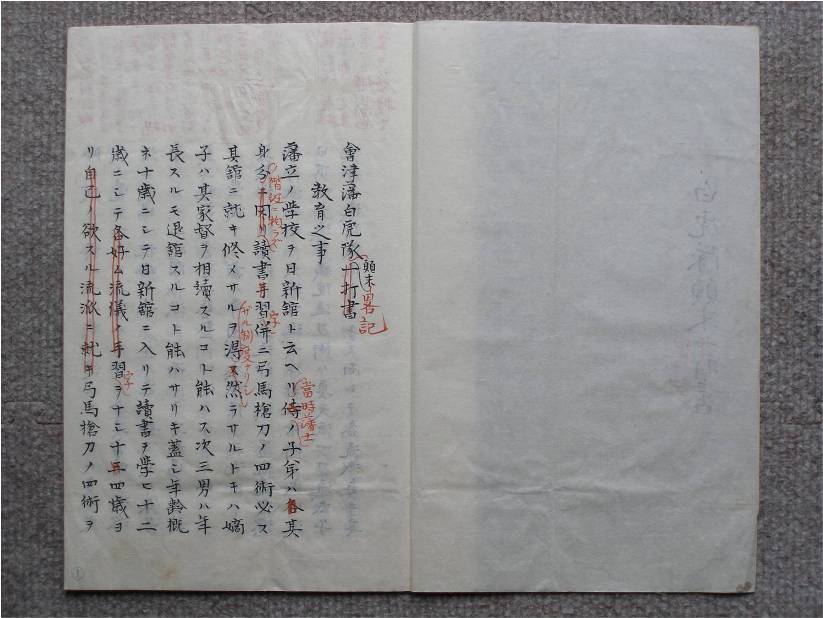 會津藩白虎隊一打書
顛末
畧記
教育之事
藩立ノ学校ヲ日新館ト云ヘリ侍ノ子弟ハ各其
當時藩士
身分ニ因リ讀書手習併ニ弓馬槍刀ノ四術必ス
階級ニ拘ラズ
字
其館ニ就キ修メサルヲ得ス然ラサルトキハ嫡
ザル制度ナリシ
子ハ其家督ヲ相續スルコト能ハス次三男ハ年
長スルモ退館スルコト能ハサリキ蓋シ年齢概
ネ十歳ニシテ日新館ニ入リテ讀書ヲ学ヒ十二
歳ニシテ各好ム流儀ノ手習ヲナシ十五四歳ヨ
字
リ自己ノ欲スル流派ニ就キ弓馬槍刀ノ四術ヲ
1
白虎隊顛末